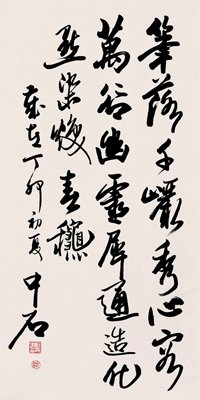 筆落千巖秀心容
萬谷幽靈犀通造化
點染煥春龝
歲在丁卯初夏
中石